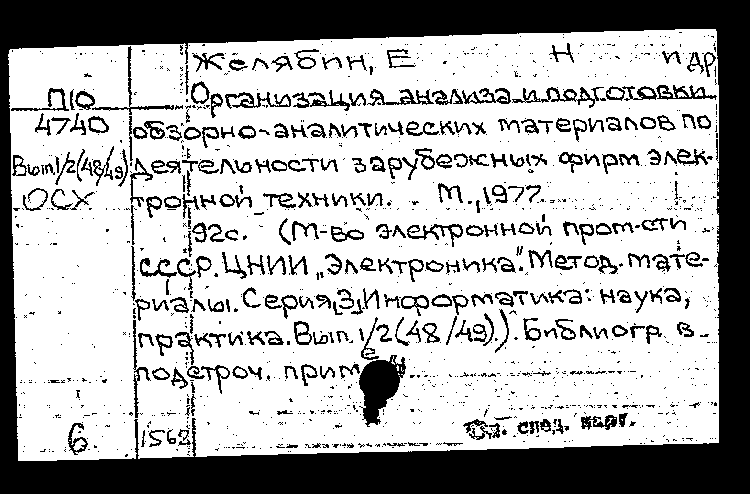 Желябин, Е Н и др
П10
Организация анализа и подготовки
4740
обзорно-аналитических материалов по
Вып.1/2(48/49)
деятельности зарубежных фирм элек-
ОСХ
тронной техники. . М., 1977
92с. (М-во электронной пром-сти
СССР. ЦНИИ „Электроника". Метод. мате-
риалы. Серия 3, Информатика: наука,
практика. Вып. 1/2(48/49).). Библиогр в
подстроч. прим
6
1562
См. след. карт.